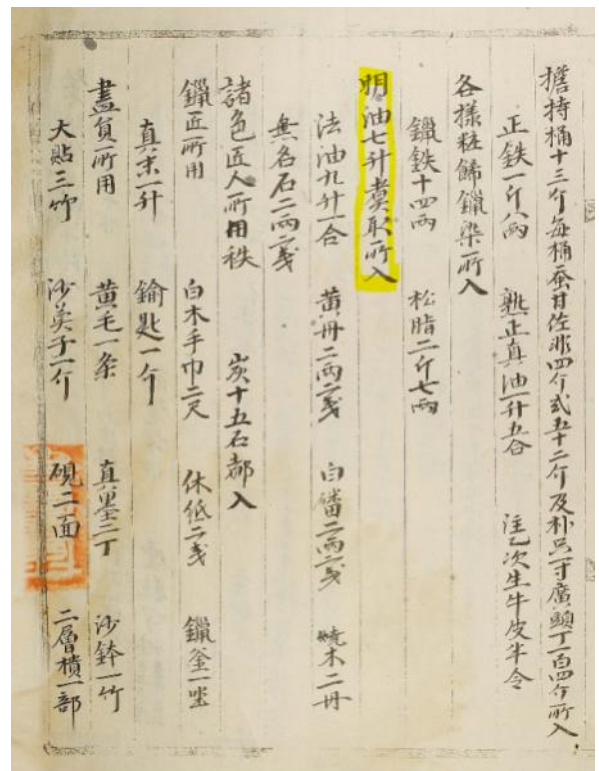 擔持桶十三介每桶蚕甘佐非四介式五十二介及朴只一寸廣頭丁一百四介所入
正鉄一斤八兩 熟正真油一升五合 注乙次生牛皮半令
各樣粧餙鑞染所入
鑞鉄十四兩 松脂二斤七兩
明油七升煑取所入
法油九升一合 黃丹二兩二戔 白礬二兩二戔 燒木二丹
無名石二兩二戔
諸色匠人所用秩 炭十五石都入
鑞匠所用 白木手巾二尺 休紙二戔 鑞釜一坐
真末一升 鍮匙一介
畫員所用 黃毛一条 真墨二丁 沙鉢一竹
大貼三竹 沙莫子一介 硯二面 二層樻一部